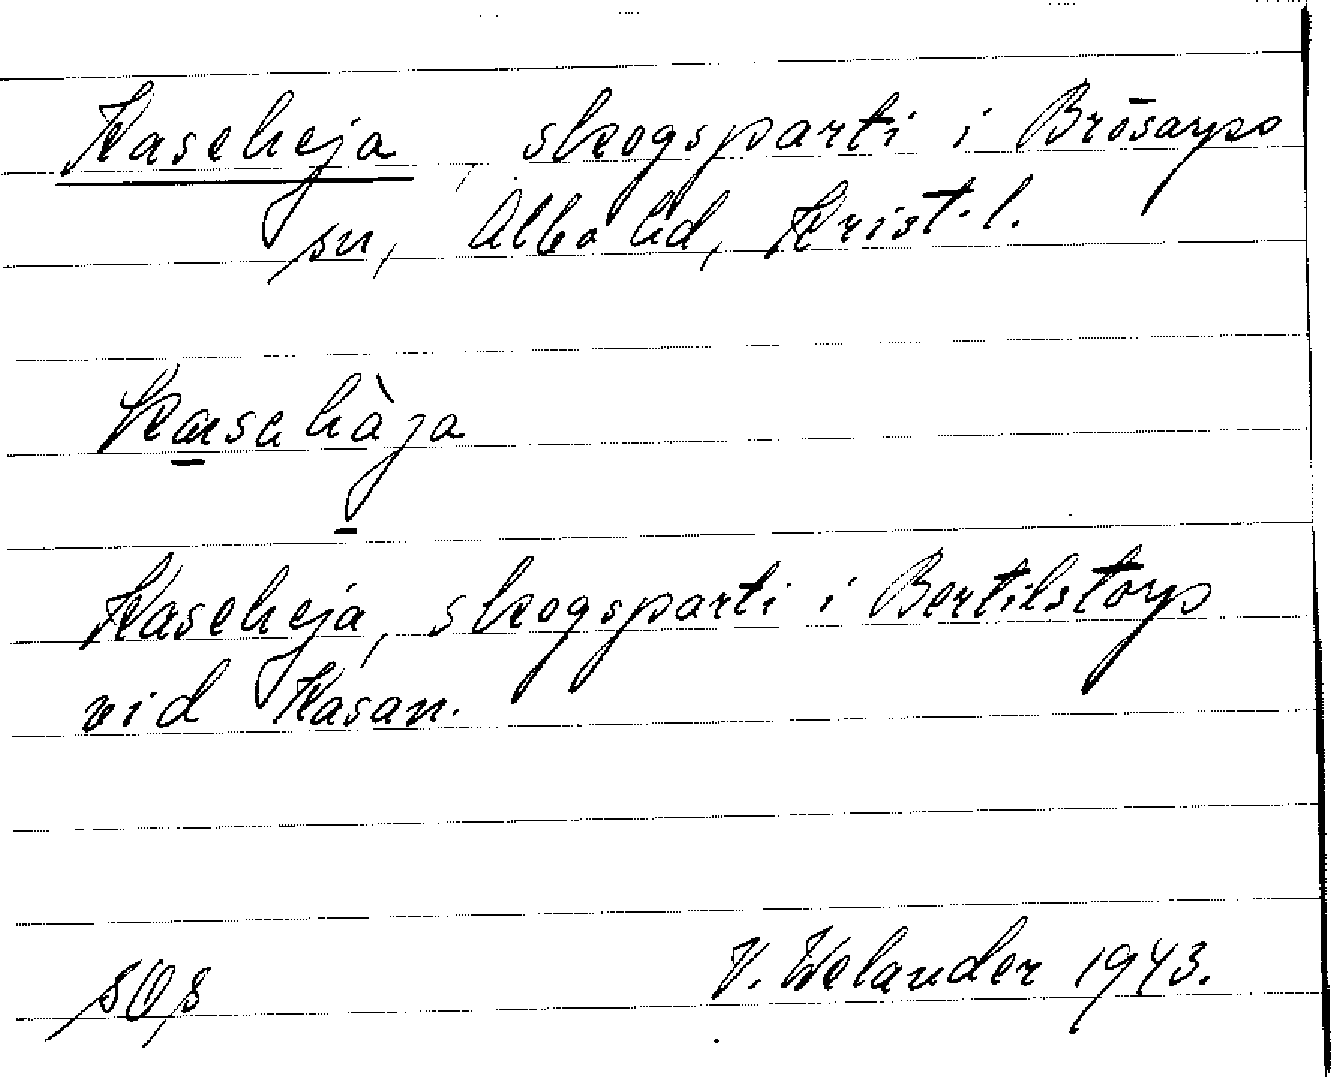 Kaseheja, skogsparti i Brösarps
sn, Albo hd, Krist. l.
Kaseheja, skogsparti i Bertilstorp
vid Kasan.
V. Welander 1943.